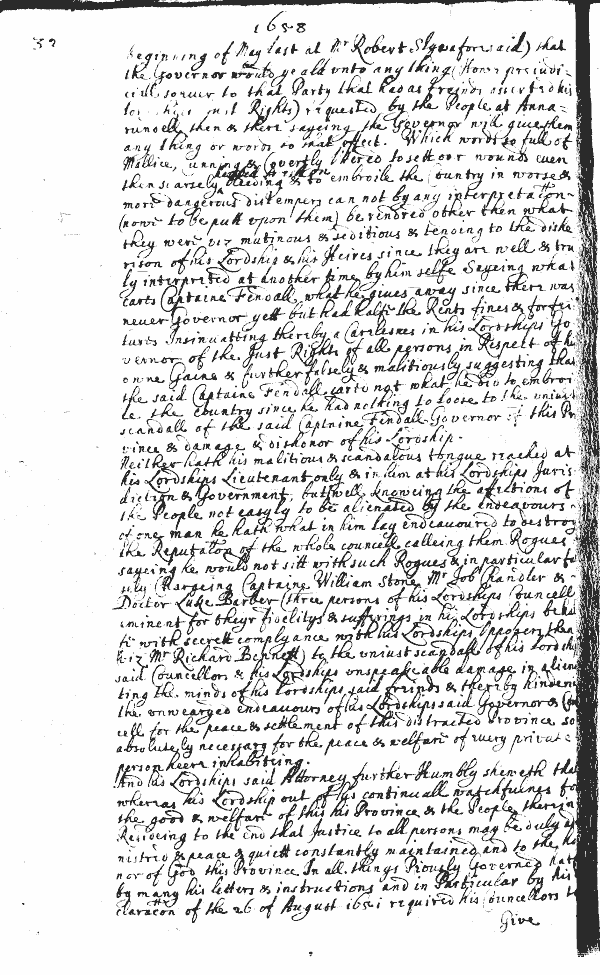 1658
32
beginning of May last at Mr Robert Slyes aforesaid) that
the Governor would yeald unto any thing (How prejudi-
ciall soever to that Party that had as freinds asserted his
Lordships just Rights) requested by the People at Anna-
rundell then & there sayeing the Governor will give them
any thing or words to that effect. Which words so full of
Mallice, cunning & Covertly uttered to sett our wounds even
then scarsely bleeding & to embroile the Country in worse &
more dangerous distempers can not by any interpretacon
(now to be putt upon them) be rendred other then what
they were viz mutinous & seditious & tending to the dishe
rison of his Lordship & his Heires since they are well & tru
ly interpreted at another time by him selfe Sayeing what
cares Captaine Fendall what he gives away since there was
never Governor yett but had halfe the Rents fines & forfei
tures Insinuatting thereby a Carelesnes in his Lordships Go
vernor of the Just Rights of all persons in Respect of his
owne Gaine & further falsely & malitiously suggesting that
the said Captaine Fendall cares not what he did to embroi
le the Country since he had nothing to loose to the uniust
scandall of the said Captaine Fendall Governor of this Pro
vince & damage & dishonor of his Lordship.
Neither hath his malitious & scandalous tongue reached at
his Lordships Lieutenant only & in him at his Lordships Juris
diction & Government, but well knowing the affections of
the People not easyly to be alienated by the endeavours
of one man he hath what in him lay endeauoured to destroy
the Reputacon of the whole councell calleing them Rogues
sayeing he would not sitt with such Rogues & in particular fa
sely Chargeing Captaine William Stone Mr Job Chandler &
Doctor Luke Barber (three persons of his Lordships Councell
eminent for theyr fidelitys & sufferings in his Lordships beha
lfe with secrett complyance with his Lordships Opposers then
viz Mr Richard Bennett) to the uniust scandall of his Lordships
said Councellors & his Lordships unspeakeable damage in aliena
ting the minds of his Lordships said freinds & thereby hindering
the unwearyed endeauours of his Lordships said Governor & Coun
cell for the peace & settlement of this distracted Province so
absolutely necessary for the peace & welfare of every private
person heere inhabiting.
And his Lordships said Attorney further Humbly sheweth that
whereas his Lordship out of his continuall watchfulnes for
the good & welfare of this his Province & the People therein
Resideing to the end that Justice to all persons may be duly ad
nistred & peace & quiett constantly maintained and to the ho
nor of God this Province In all things Piously Governed hath
by many his letters & instructions and in Particular by his
claracon of the 26 of August 1651 required his Councellors to
Give